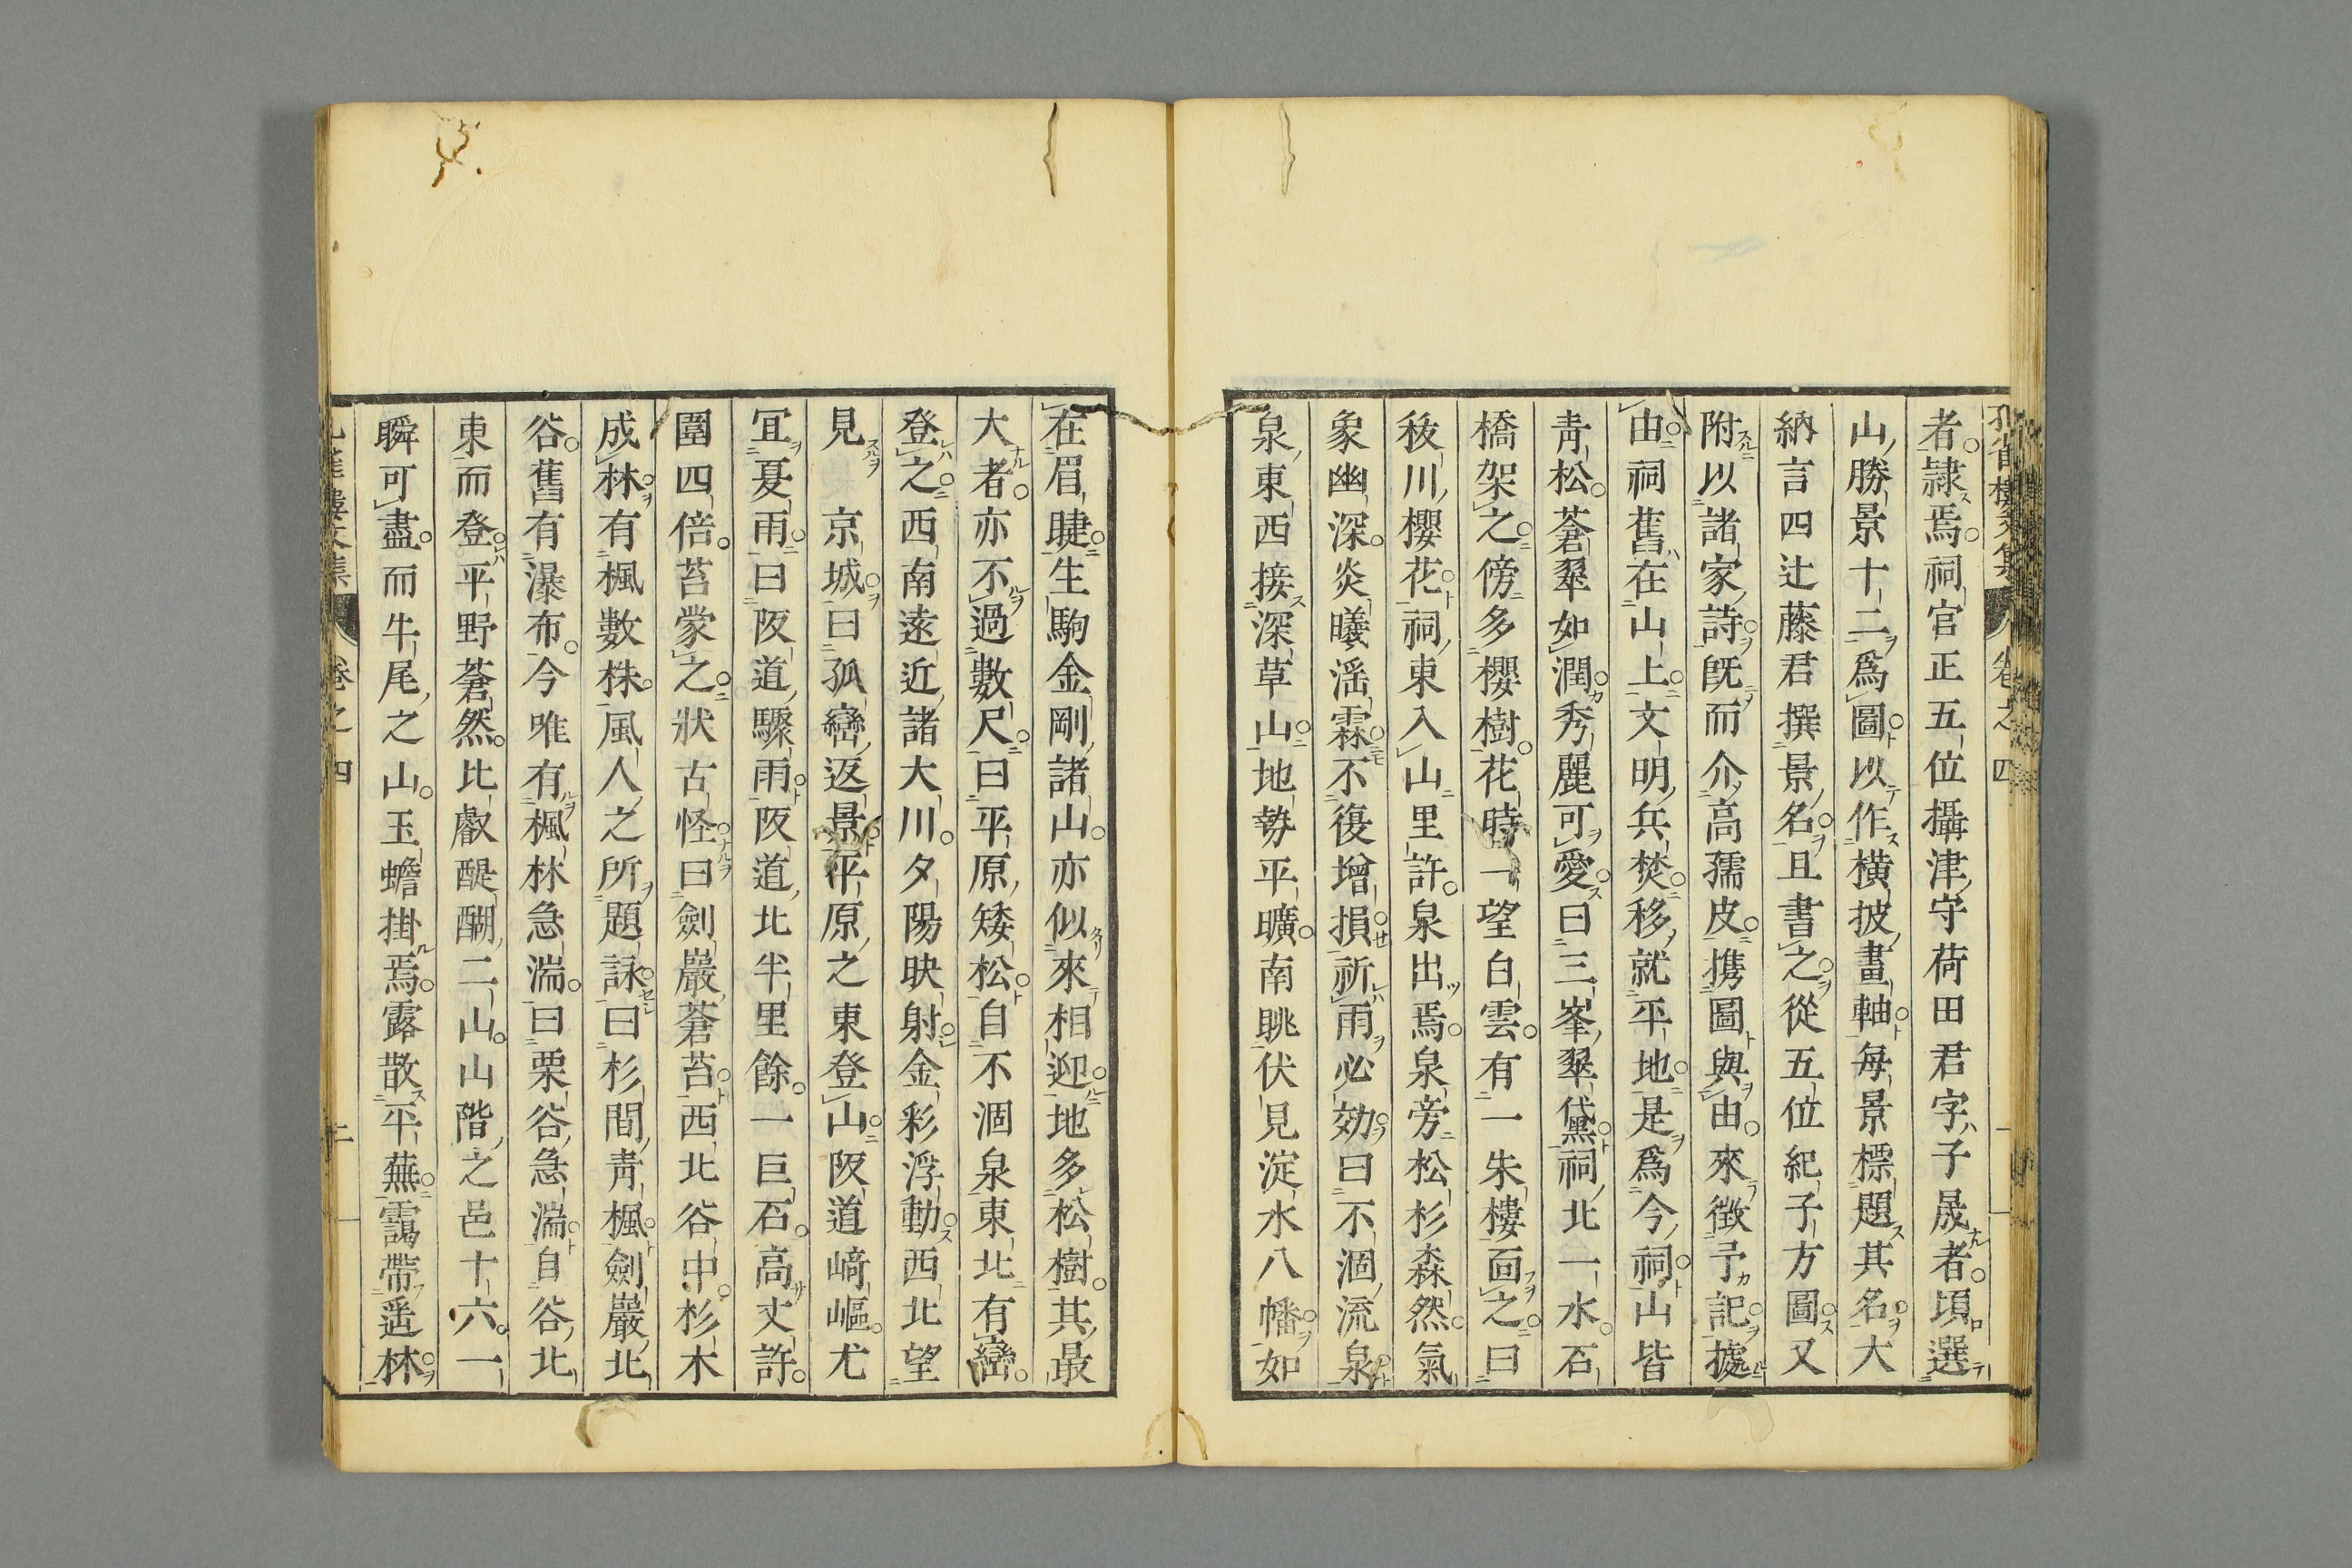 者隷焉祠官正五位攝津守荷田君字子晟者頃選
山勝景十二爲圖以作橫披畫軸每景標題其名大
納言四辻藤君撰景名且書之從五位紀子方圖又
附以諸家詩旣而介高孺皮携圖與由來徵予記據
由祠舊在山上文明兵焚移就平地是爲今祠山皆
靑松蒼翠如潤秀麗可愛曰三峯翠黛祠北一水石
橋架之傍多櫻樹花時一望白雲有一朱樓面之曰
秡川櫻花祠東入山里許泉出焉泉旁松杉森然氣
象幽深炎曦滛霖不復增損祈雨必効曰不涸流泉
泉東西接深草山地勢平曠南眺伏見淀水八幡如
在眉睫生駒金剛諸山亦似來相迎地多松樹其最
大者亦不過數尺曰平原矮松自不涸泉東北有巒
登之西南遠近諸大川夕陽映射金彩浮動西北望
見 京城曰孤巒返景平原之東登山阪道崎嶇尤
冝夏雨曰阪道驟雨阪道北半里餘一巨石高丈許
圍四倍苔蒙之狀古怪曰劍巖蒼苔西北谷中杉木
成林有楓數株風人之所題詠曰杉間靑楓劍巖北
谷舊有瀑布今唯有楓林急湍曰栗谷急湍自谷北
東而登平野蒼然比叡醍醐二山山階之邑十六一
瞬可盡而牛尾之山玉蟾掛焉露散平蕪靄帶遥林
卷之四
卷之四 二